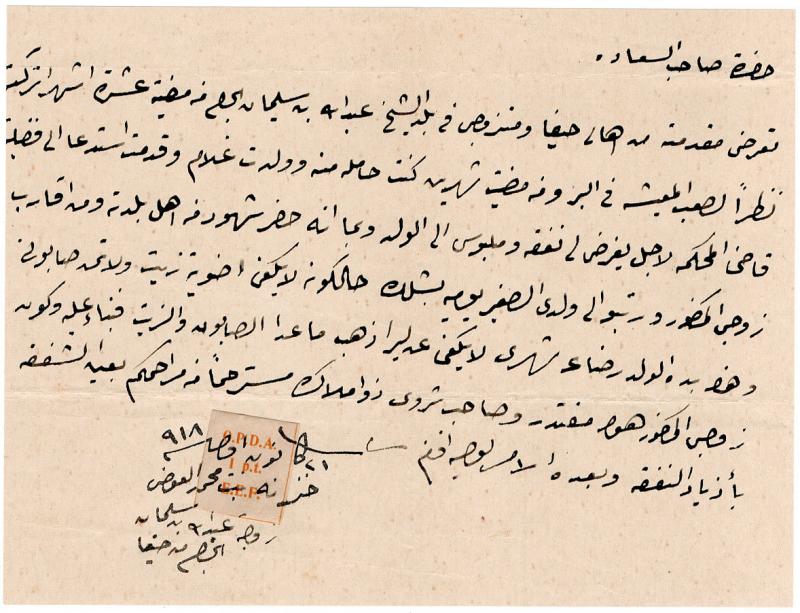 حضرة صاحب السعاده
تعرض مقدمته من اهالي حيفا ومتزوجه في بلد الشيخ عبدالله بن سليمان من مضية عشرة اشهر
نظراً لصعب المعيشه في البر ومن مضيت شهرين كنت حامله منه وولدت غلام وقدمت استدعا الى فضيلة
قاضي المحكمه لاجل يفرض لي نفقه وملبوس الى الولد وبما انه حضر شهود من اهل بلدته ومن اقارب
زوجي المذكور ورتبو الى ولدي الصغير يوميه بشلك حالكونه لا يكفي اضوية زيت ولا ثمن صابون
وهو بده الولد رضاعه شهري لا يكفي عن ليرا ذهب ما عدا الصابون والزيت فبناء عليه وكون
زوجي المذكور هو مقتدر وصاحب ثروى ذو املاك مسترحماً من مراحمكم بعين الشفقه
بأزياد النفقه وبعده الامر لوليه افندم
٢١ كانون اول سنه ٩١٨
O.P.D.A.
1 p.t.
E.E.F.
بنت محمد العوض
زوجة عبدالله بن سليمان
من حيفا